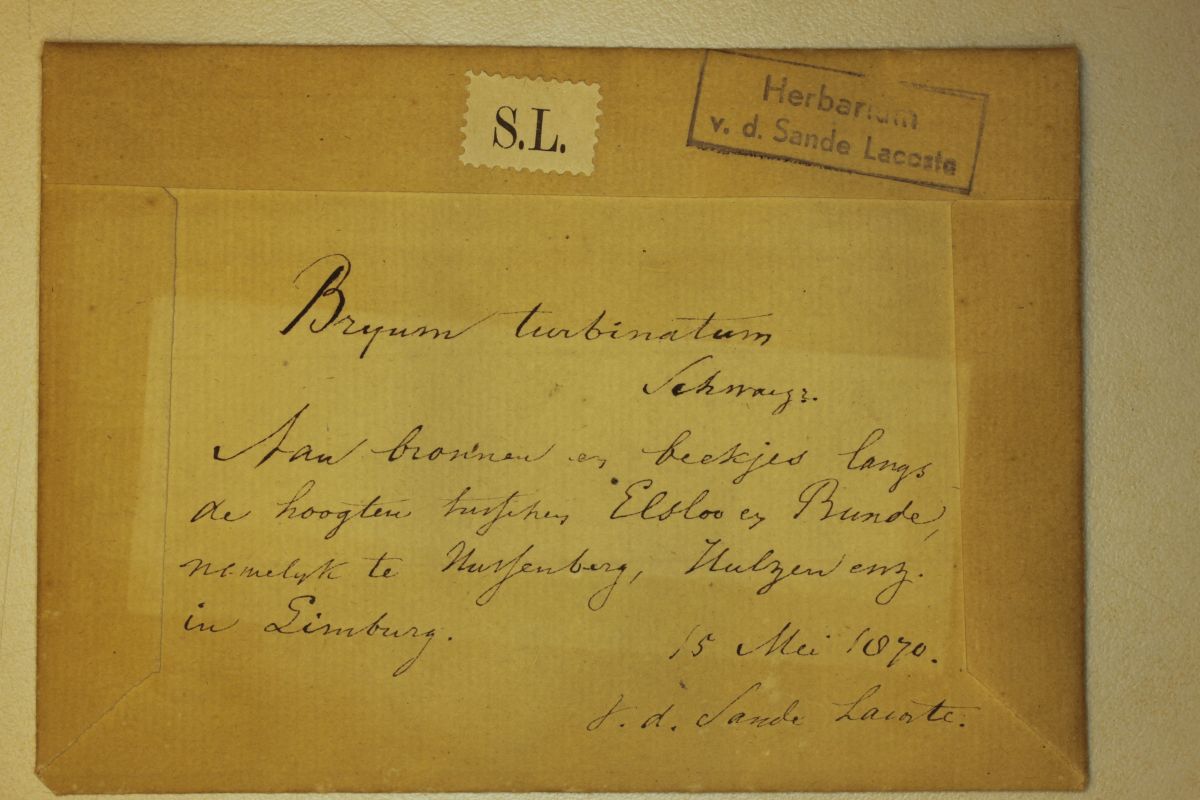 S.L.
Herbarium
v. d. Sande Lacoste
Bryum turbinatum
Schwaegr.
Aan bronnen en beekjes langs
de hoogten tusschen Elsloo en Bunde,
namelyk te Hussenberg, Hulzen enz.
in Limburg.
15 Mei 1870.
v. d. Sande Lacoste.